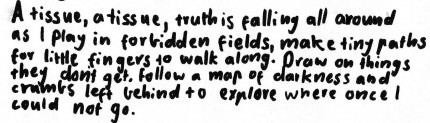 A tissue, a tissue, truth is falling all around
as I play in forbidden fields, make tiny paths
for little fingers to walk along. Draw on things
they dont get. Follow a map of darkness and
crumbs left behind to explore where once I
could not go.